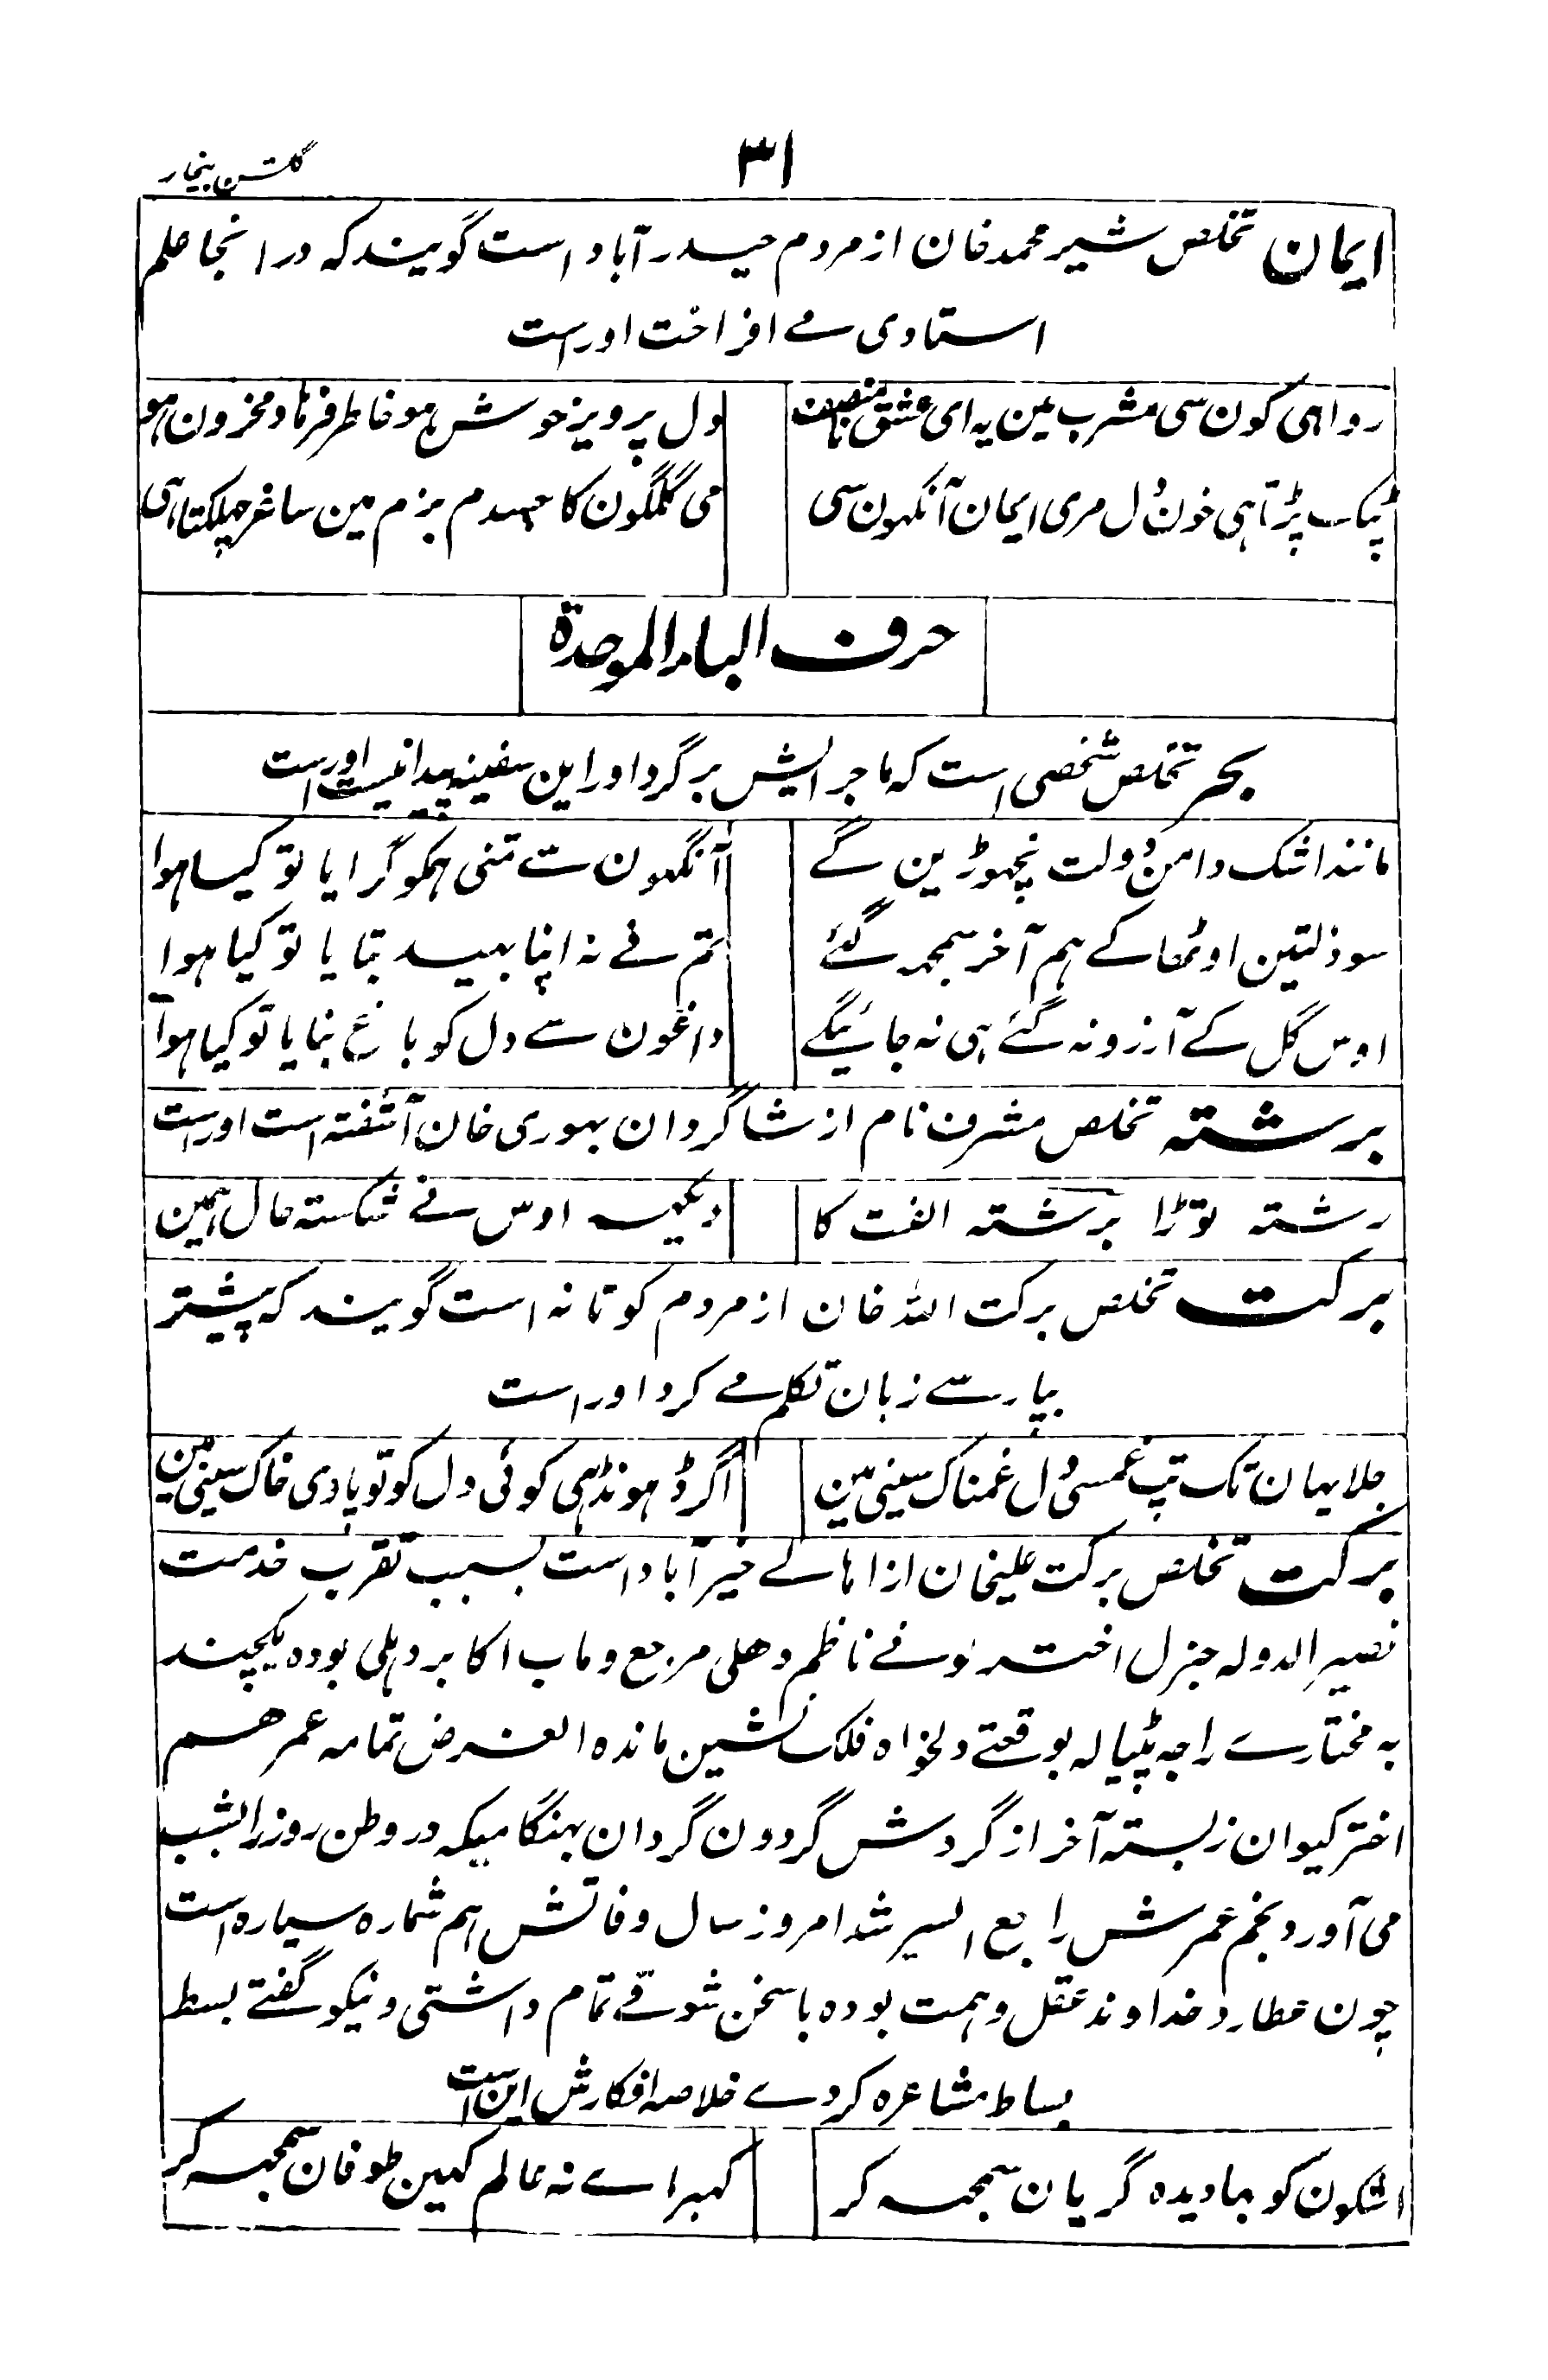 گلشن بیخار
۳۱
ایمان تخلص شیر محمد خان از مردم حیدر آباد است گویند که در انجا علم
استادی مے افراخت اوراست
روا ہی کون سی مشرب مین یہ ای عشق نا منصف
دل پرویز خوش ہو خاطر فرہاد مخزون ہو
ٹپک پڑتا ہی خون دل مری ایمان آنکہون سی
می گلگون کا جسدم بزم مین ساغر چہلکتا ہی
حرف الباء الموحدة
بحر تخلص شخصی است که ماجرایش بر گرداور این سفینہ پیدا نیست اوراست
مانند اشک دامن دولت نچہوڑین گے
آنکہون ستے تمنی ہمکو گرایا تو کیسا ہوا
سو ذلتین اوٹھا کے ہم آخر سمجہ گئے
تم نے نہ اپنا بہید بتایا تو کیا ہوا
اوس گل کے آرزو نہ گئے ہی نہ جائیگے
داغون سے دل کو باغ بنایا تو کیا ہوا
برشتہ تخلص مشرف نام از شاگردان بہوری خان آشفتہ است اوراست
رشتہ توڑا برشتہ الفت کا
دیکہہ اوس نے شکستہ حال ہمین
برکت تخلص برکت اللہ خان از مردم کوتانہ است گویند کہ پیشتر
بپارسے زبان تکلم مے کرد اوراست
جلا یہان تک تپ غمسی دل غمناک سینی مین
اگر ڈہونڈہی کوئی دل کو تو پاوی خاک سینی مین
برکت تخلص برکت علیخان از اہالے خیر آباد است بسبب تقرب خدمت
نصیر الدولہ جنرل اختر لونے ناظم دھلی مرجع و ماب اکابر دہلی بودہ یکچند
بہ مختارے راجہ پٹیالہ بوقعتے دلخواہ فلک نشین ماندہ الغرض تمامہ عمر ھم
اختر کیوان زیستہ آخر از گردش گردون گردان بہنگامیکہ در وطن روز را بشب
می آورد نجم عمرش راجع السیر شد امروز سال وفاتش ہم شمارہ سیارہ است
چون عطارد خداوند عقل و ہمت بودہ با سخن شوقے تمام داشتی و نیکو گفتے بسط
بساط مشاعرہ کردے خلاصہ افکارش این است
اشکون کو بہا دیدہ گریان سمجہہ کر
گہبراے نہ عالم کہین طوفان سمجہہ کر